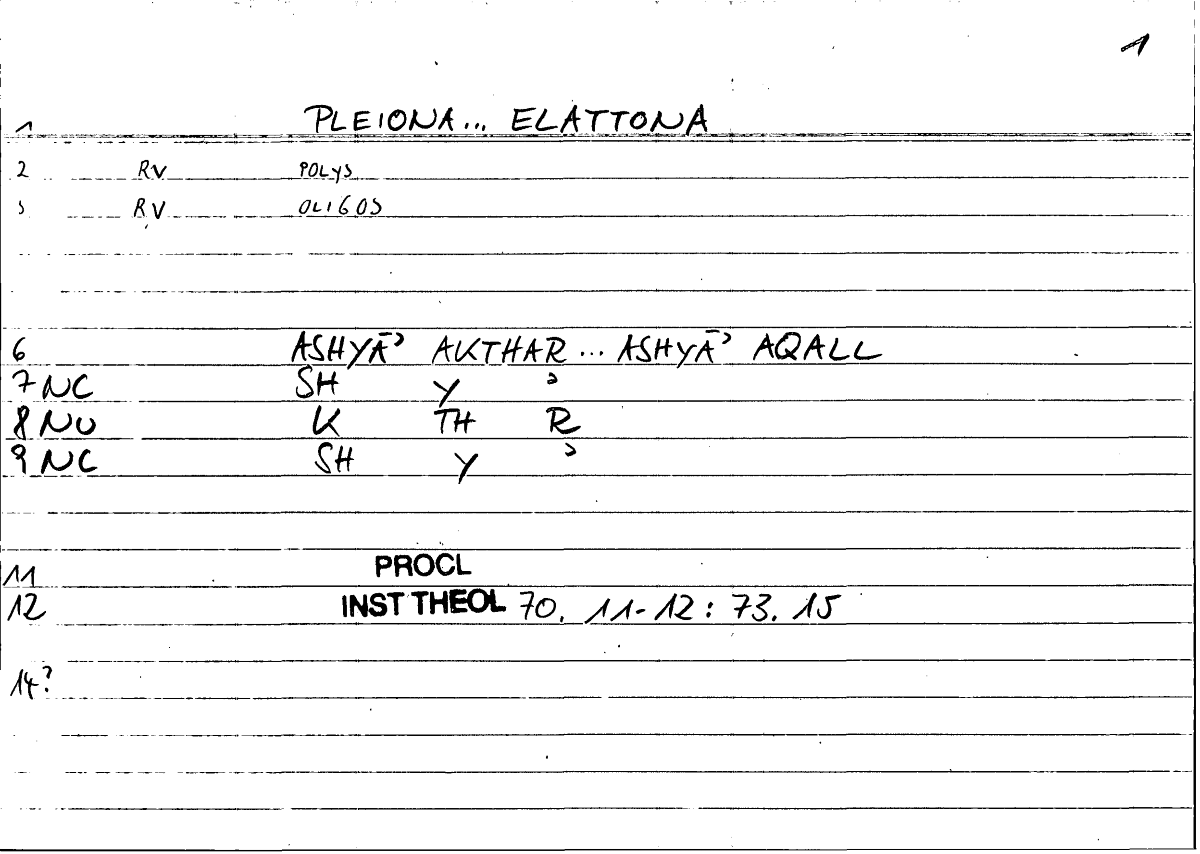 1
1 PLEIONA... ELATTONA
2 RV POLYS
3 RV OLIGOS
6 ASHYĀʾ AKTHAR ... ASHYĀʾ AQALL
7 NC SH Y ʾ
8 NU K TH R
9 NC SH Y ʾ
11 PROCL
12 INST THEOL 70. 11-12 : 73. 15
14?